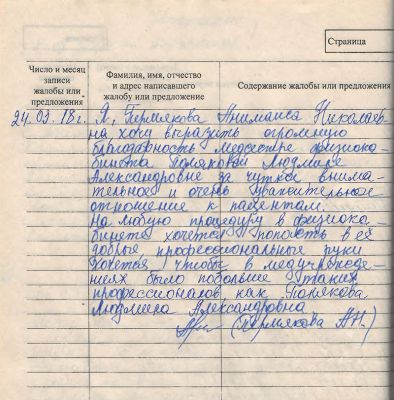 Страница
Число и месяц
записи
жалобы или
предложения
Фамилия, имя, отчество
и адрес написавшего
жалобу или предложение
Содержание жалобы или предложения
24.03.18г. Я, Пермякова Николаев-
на хочу выразить огромную
благодарность медсестре физиока-
бинета Поляковой Людмиле
Александровне за чуткое внима-
тельное и очень уважительное
отношение к пациентам.
На любую процедуру в физиока-
бинете хочется попасть в её
добрые профессиональные руки
Хочется, чтобы в медучрежде-
ниях было побольше таких
профессионалов, как Полякова
Людмила Александровна
(Пермякова А.Н.)